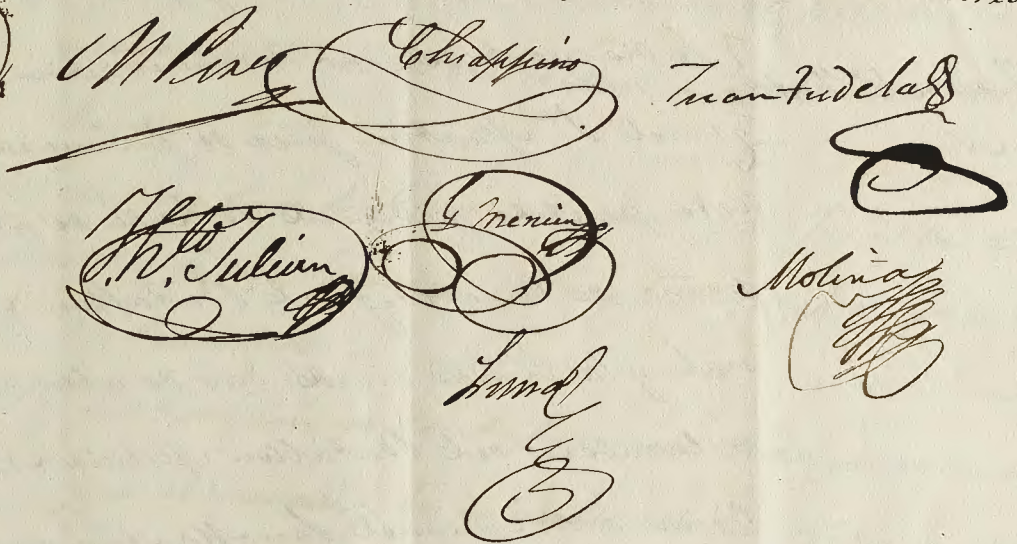 M Perez Chiappino Juan Tudela
Julian G Mencia
Molina
Luna